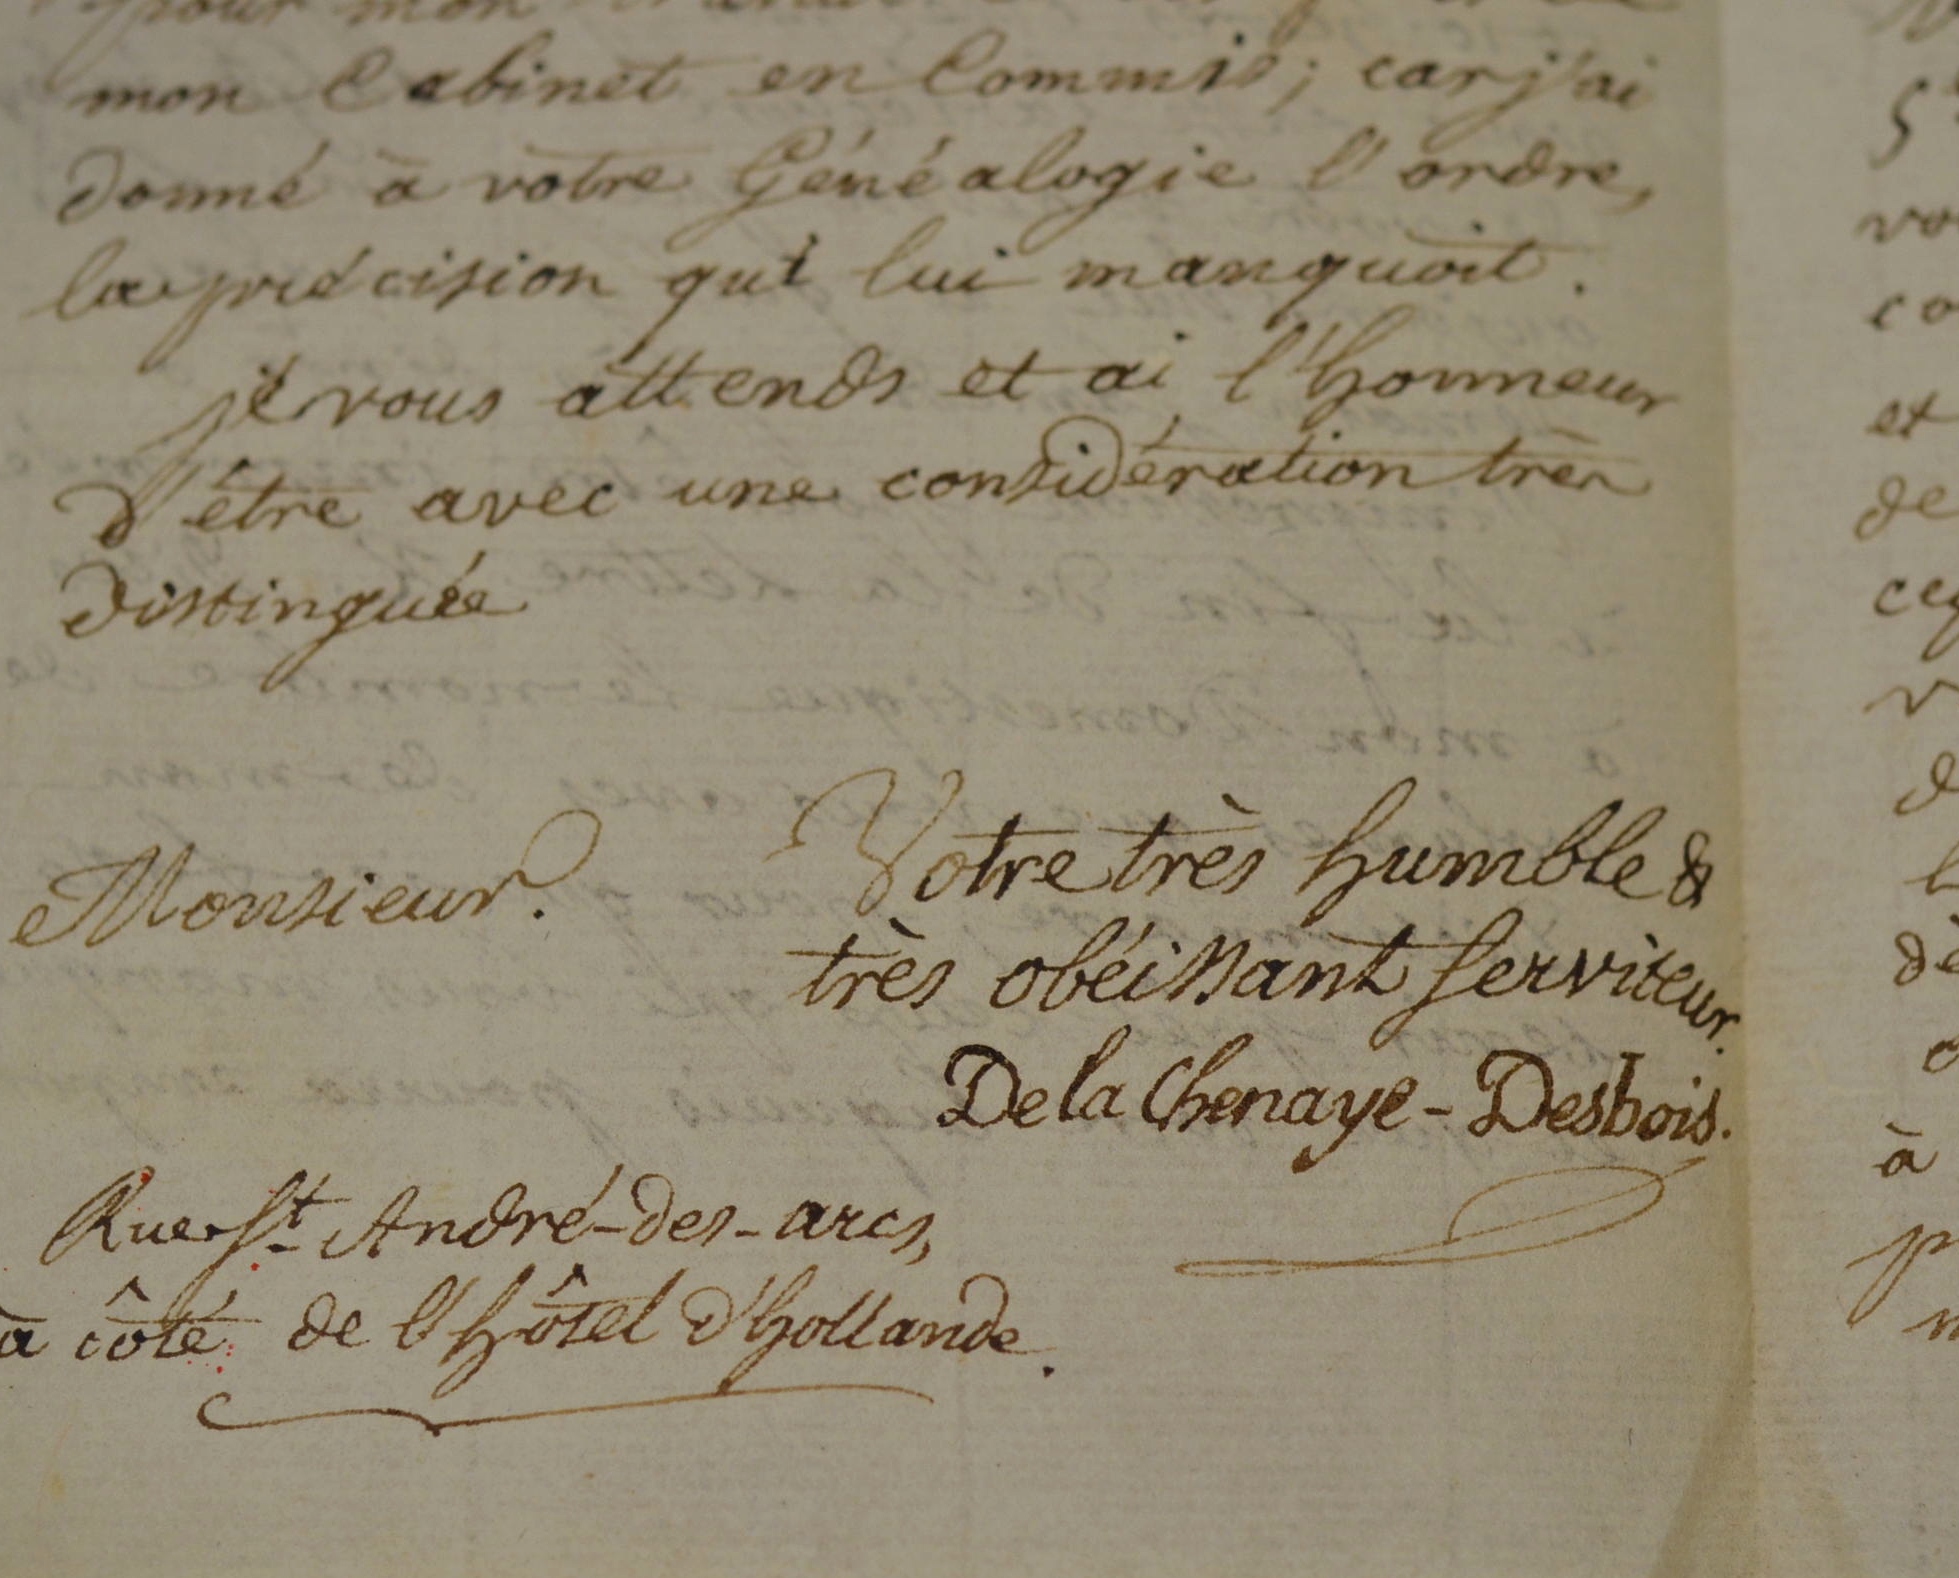 pour mon
mon Cabinet en Commis; car j'ai
donné à votre Généalogie l'ordre,
la précision qui lui manquoit.
je vous attends et ai l'honneur
d'être avec une considération très
distinguée
Monsieur.
Votre très humble &
très obéissant serviteur.
De la Chenaye-Desbois.
Rue St André-des-arcs,
à côté de l'hôtel d'hollande.
et
de
à